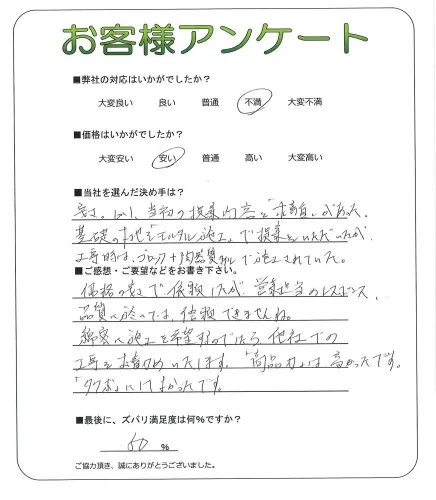 お客様アンケート
■弊社の対応はいかがでしたか?
大変良い 良い 普通 不満 大変不満
■価格はいかがでしたか?
大変安い 安い 普通 高い 大変高い
■当社を選んだ決め手は?
安さ。しかし、当初の提案内容と「矛盾」があった。
基礎の 「モルタル施工」で提案をいただいたが
工事時は、ブロック+ で施工されていた。
■ご感想・ご要望などをお書き下さい。
価格の安さで依頼したが、営業担当のレスポンス、
品質に於いては、信頼できませんね。
綺麗に施工を希望するのでしたら、他社での
工事をお勧めいたします。「商品力」は高かったです。
「タクボ」にしてよかったです。
■最後に、ズバリ満足度は何%ですか?
50 %
ご協力頂き、誠にありがとうございました。